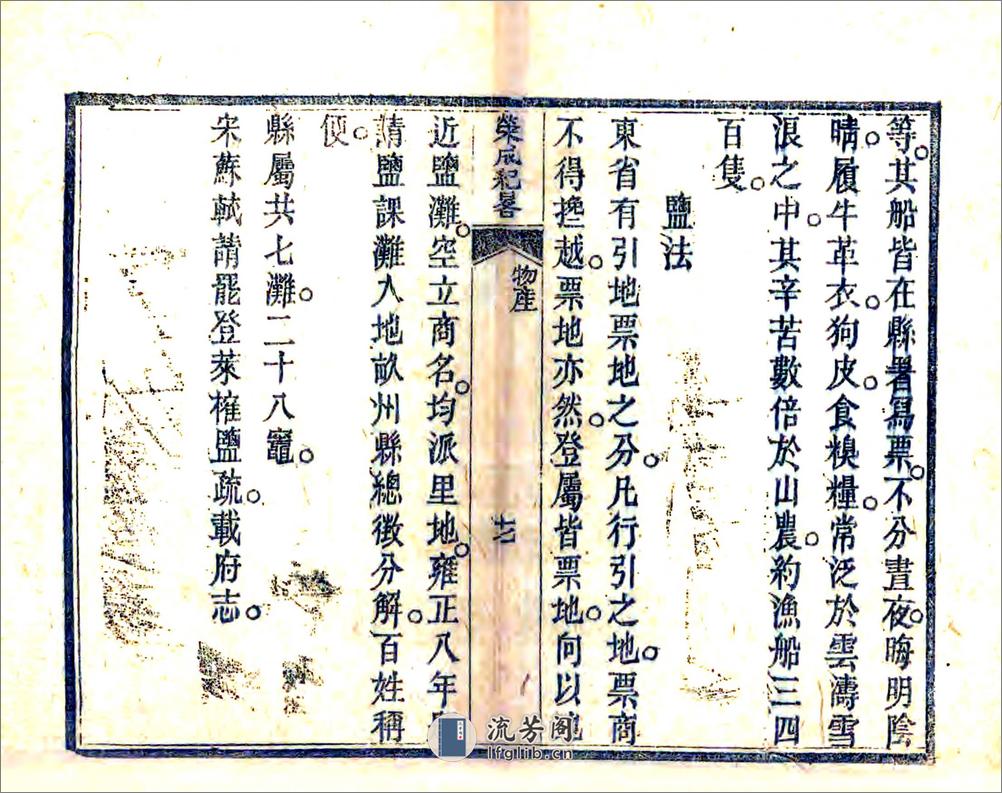 等其船皆在縣署寫票不分晝夜晦明陰
晴履牛革衣狗皮食糗糧常泛於雲濤雪
浪之中其辛苦數倍於山農約漁船三四
百隻
鹽法
東省有引地票地之分凡行引之地票商
不得攙越票地亦然登屬皆票地向以地
榮成紀畧
物産
十七
近鹽灘空立商名均派里地雍正八年
請鹽課灘入地畝州縣總徵分解百姓稱
便
縣屬共七灘二十八竈
宋蘇軾請罷登萊榷鹽疏載府志
流芳阁
lfglib.cn